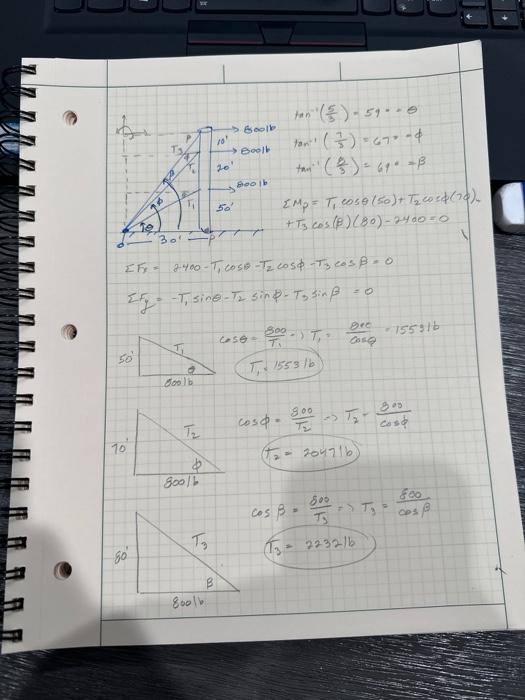 tan⁻¹(5/3) = 59° = θ
tan⁻¹(7/3) = 67° = ϕ
tan⁻¹(8/3) = 69° = β
800lb
10'
800lb
20'
800lb
50'
P
T₃
ϕ
T₂
β
T₁
ϕ
θ
30'
P
ΣMp = T₁ cosθ(50) + T₂ cosϕ(70)
+ T₃ cos(β)(80) - 2400 = 0
ΣFx = 2400 - T₁ cosθ - T₂ cosϕ - T₃ cos β = 0
ΣFy = -T₁ sinθ - T₂ sinϕ - T₃ sin β = 0
50'
T₁
θ
800lb
cosθ = 800/T₁ -> T₁ = 800/cosθ = 1553lb
T₁ = 1553lb
70'
T₂
ϕ
800lb
cosϕ = 800/T₂ -> T₂ = 800/cosϕ
T₂ = 2047lb
80'
T₃
β
800lb
cos β = 800/T₃ => T₃ = 800/cos β
T₃ = 2232lb